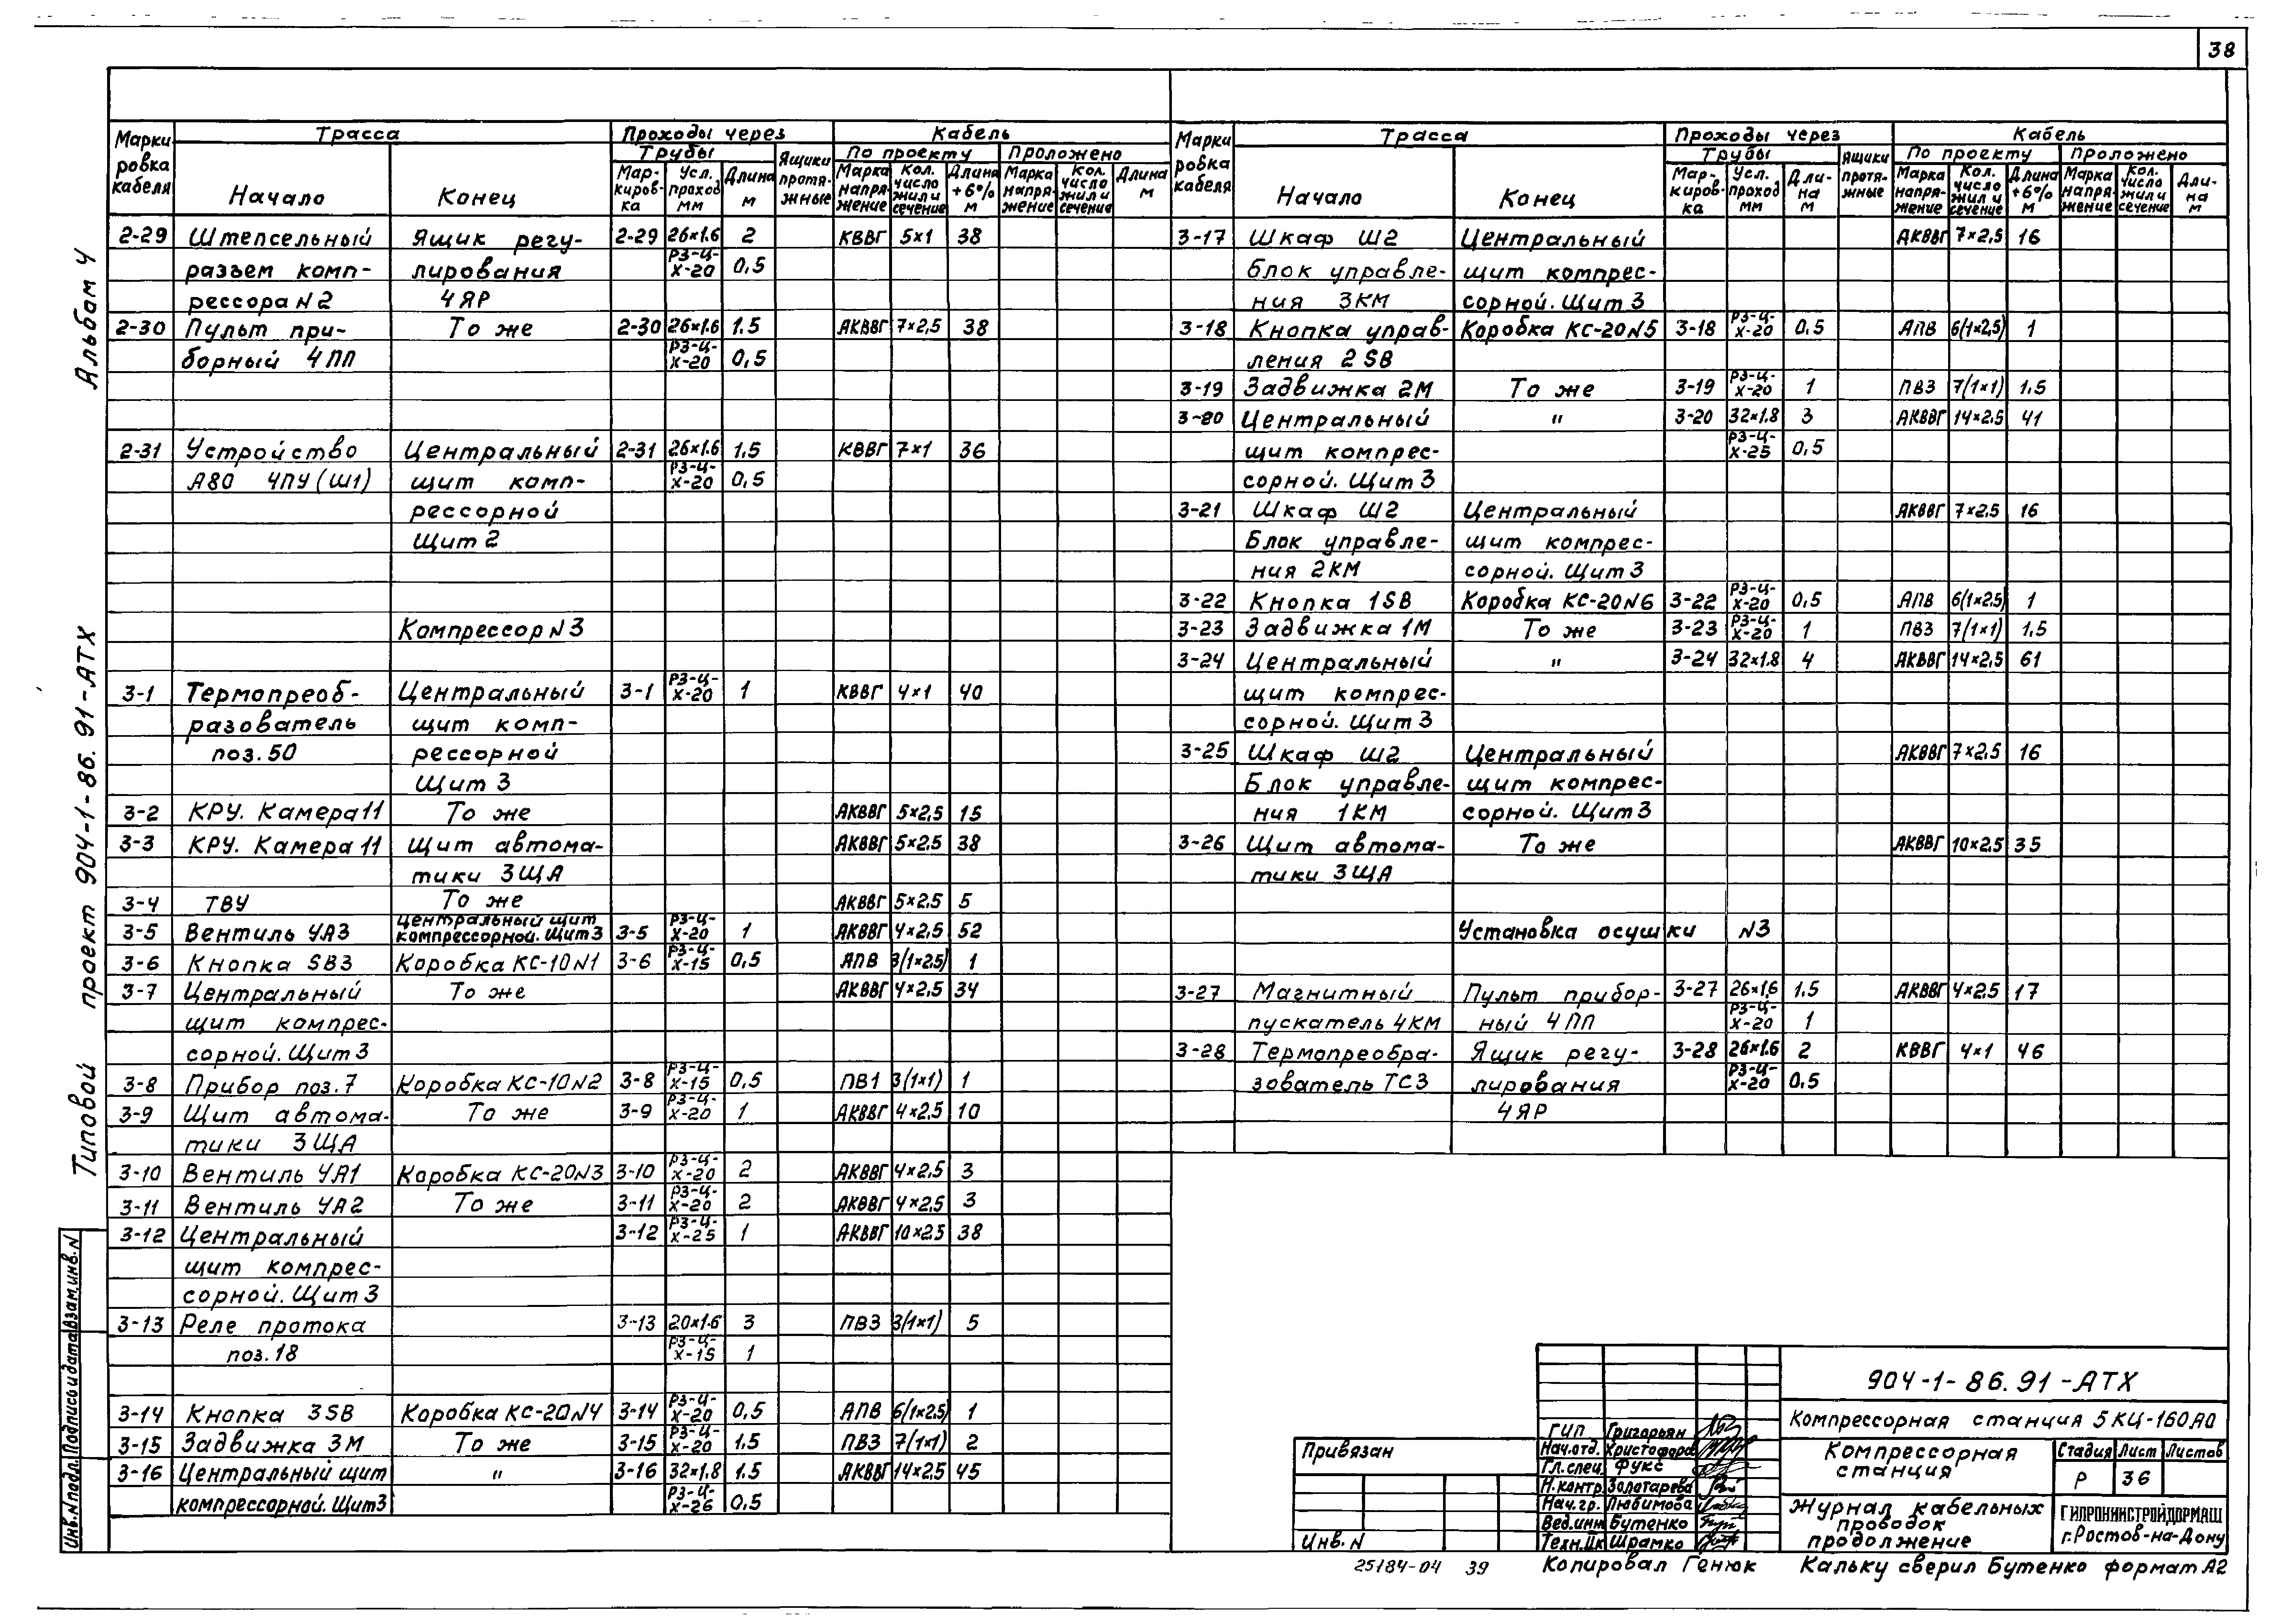 38
Альбам 4
Типовой проект 904-1-86.91-АТХ
Инв.N подл. Подпись и дата Взам.инв.N
Марки ровка кабеля
Трасса
Начало
Конец
Проходы через
Трубы
Мар- киров- ка
Усл. проход мм
Длина м
Ящики протя- жные
Кабель
По проекту
Марка напря- жение
Кол. число жил и сечение
Длина +6% м
Проложено
Марка напря- жение
Кол. число жил и сечение
Длина м
2-29 Штепсельный Ящик регу- 2-29 26×1.6 2 КВВГ 5×1 38
разъем комп- лирования РЗ-Ц-Х-20 0,5
рессора N2 4ЯР
2-30 Пульт при- То же 2-30 26×1.6 1.5 АКВВГ 7×2,5 38
борный 4ПП РЗ-Ц-Х-20 0,5
2-31 Устройство Центральный 2-31 26×1.6 1,5 КВВГ 7×1 36
А80 4ПУ (Ш1) щит комп- РЗ-Ц-Х-20 0,5
рессорной
Щит 2
Компрессор N3
3-1 Термопреоб- Центральный 3-1 РЗ-Ц-Х-20 1 КВВГ 4×1 40
разователь щит комп-
поз.50 рессорной
Щит 3
3-2 КРУ. Камера 11 То же АКВВГ 5×2,5 15
3-3 КРУ. Камера 11 Щит автома- АКВВГ 5×2,5 38
тики 3ЩА
3-4 ТВУ То же АКВВГ 5×2.5 5
3-5 Вентиль УА3 Центральный щит компрессорной. Щит 3 3-5 РЗ-Ц-Х-20 1 АКВВГ 4×2,5 52
3-6 Кнопка SB3 Коробка КС-10N1 3-6 РЗ-Ц-Х-15 0,5 АПВ 3/(1×2.5) 1
3-7 Центральный То же АКВВГ 4×2,5 34
щит компрес-
сорной. Щит 3
3-8 Прибор поз.7 Коробка КС-10N2 3-8 РЗ-Ц-Х-15 0,5 ПВ1 3/(1×1) 1
3-9 Щит автома- То же 3-9 РЗ-Ц-Х-20 1 АКВВГ 4×2,5 10
тики 3ЩА
3-10 Вентиль УА1 Коробка КС-20N3 3-10 РЗ-Ц-Х-20 2 АКВВГ 4×2.5 3
3-11 Вентиль УА2 То же 3-11 РЗ-Ц-Х-20 2 АКВВГ 4×2.5 3
3-12 Центральный 3-12 РЗ-Ц-Х-25 1 АКВВГ 10×2.5 38
щит компрес-
сорной. Щит 3
3-13 Реле протока 3-13 20×1.6 3 ПВ3 3/(1×1) 5
поз.18 РЗ-Ц-Х-15 1
3-14 Кнопка 3SB Коробка КС-20N4 3-14 РЗ-Ц-Х-20 0,5 АПВ 6/(1×2.5) 1
3-15 Задвижка 3М То же 3-15 РЗ-Ц-Х-20 1.5 ПВ3 7/(1×1) 2
3-16 Центральный щит " 3-16 32×1,8 1.5 АКВВГ 14×2.5 45
компрессорной. Щит 3 РЗ-Ц-Х-26 0,5
Марки ровка кабеля
Трасса
Начало
Конец
Проходы через
Трубы
Мар- киров ка
Усл. проход мм
Дли- на м
Ящики протя- жные
Кабель
По проекту
Марка напря- жение
Кол. число жил и сечение
Длина +6% м
Проложено
Марка напря- жение
Кол. число жил и сечение
Дли- на м
3-17 Шкаф Ш2 Центральный АКВВГ 7×2,5 16
блок управле- щит компрес-
ния 3КМ сорной. Щит 3
3-18 Кнопка управ- Коробка КС-20N5 3-18 РЗ-Ц-Х-20 0,5 АПВ 6/(1×2,5) 1
ления 2SB
3-19 Задвижка 2М То же 3-19 РЗ-Ц-Х-20 1 ПВ3 7/(1×1) 1,5
3-20 Центральный " 3-20 32×1.8 3 АКВВГ 14×2.5 41
щит компрес- РЗ-Ц-Х-25 0,5
сорной. Щит 3
3-21 Шкаф Ш2 Центральный АКВВГ 7×2.5 16
Блок управле- щит компрес-
ния 2КМ сорной. Щит 3
3-22 Кнопка 1SB Коробка КС-20N6 3-22 РЗ-Ц-Х-20 0,5 АПВ 6/(1×2.5) 1
3-23 Задвижка 1М То же 3-23 РЗ-Ц-Х-20 1 ПВ3 7/(1×1) 1.5
3-24 Центральный " 3-24 32×1.8 4 АКВВГ 14×2.5 61
щит компрес-
сорной. Щит 3
3-25 Шкаф Ш2 Центральный АКВВГ 7×2,5 16
Блок управле- щит компрес-
ния 1КМ сорной. Щит 3
3-26 Щит автома- То же АКВВГ 10×2.5 35
тики 3ЩА
Установка осушки N3
3-27 Магнитный Пульт прибор- 3-27 26×1,6 1.5 АКВВГ 4×2,5 17
пускатель 4КМ ный 4ПП РЗ-Ц-Х-20 1
3-28 Термопреобра- Ящик регу- 3-28 26×1.6 2 КВВГ 4×1 46
зователь ТС3 лирования РЗ-Ц-Х-20 0,5
4ЯР
Привязан
Инв.N
ГИП Григорьян
Нач.отд. Христофоров
Гл.спец. Фукс
Н.контр. Золотарева
Нач.гр. Любимова
Вед.инж Бутенко
Техн.IIк Шрамко
904-1-86.91-АТХ
Компрессорная станция 5КЦ-160А0
Компрессорная станция
Стадия Лист Листов
Р 36
Журнал кабельных проводок продолжение
ГИПРОНИИСТРОЙДОРМАШ
г.Ростов-на-Дону
25184-04 39
Копировал Генюк Кальку сверил Бутенко формат А2